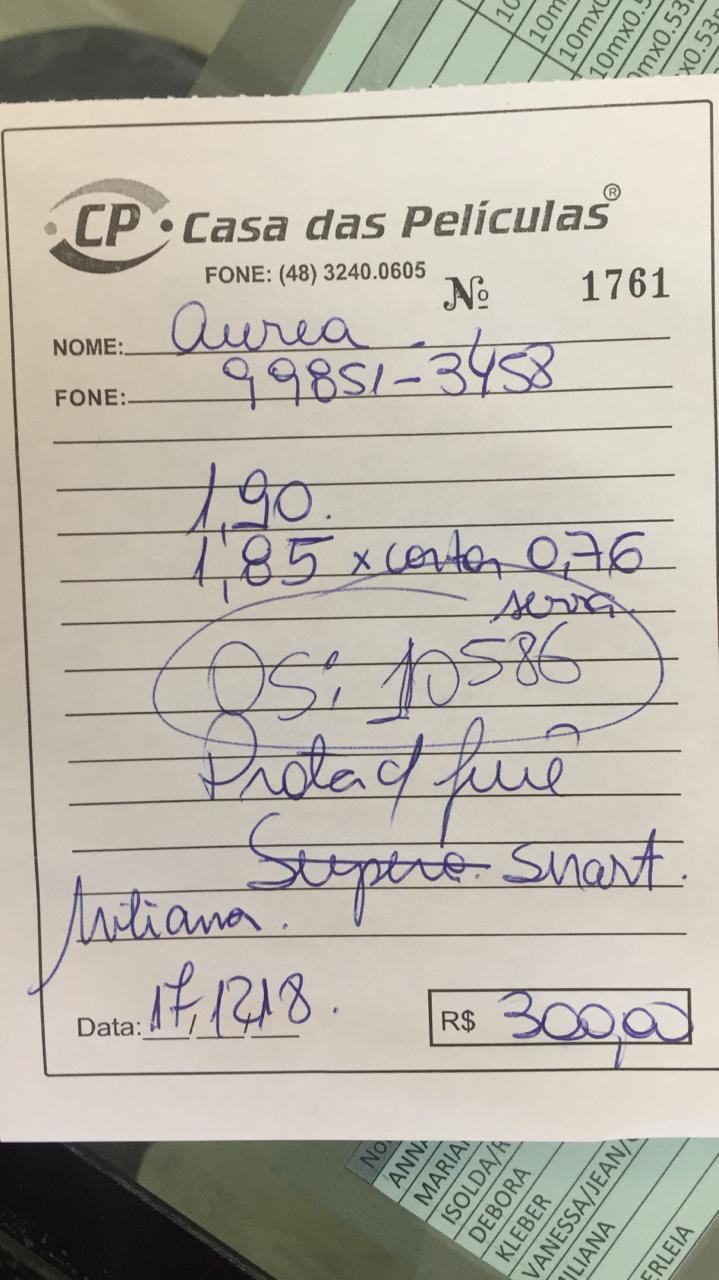 10
10mx0.53
10mx0.53
0mx0.53m
x0.53m
CP Casa das Películas®
FONE: (48) 3240.0605 Nº 1761
NOME: Aurea
FONE: 99851-3458
1,90.
1,85 x 0,76
OS: 10586
Supere. Smart.
Data: 17/12/18. R$ 300,00
ANN
MARIA
ISOLDA/R
DEBORA
KLEBER
VANESSA/JEAN/
ILIANA
ERLEIA